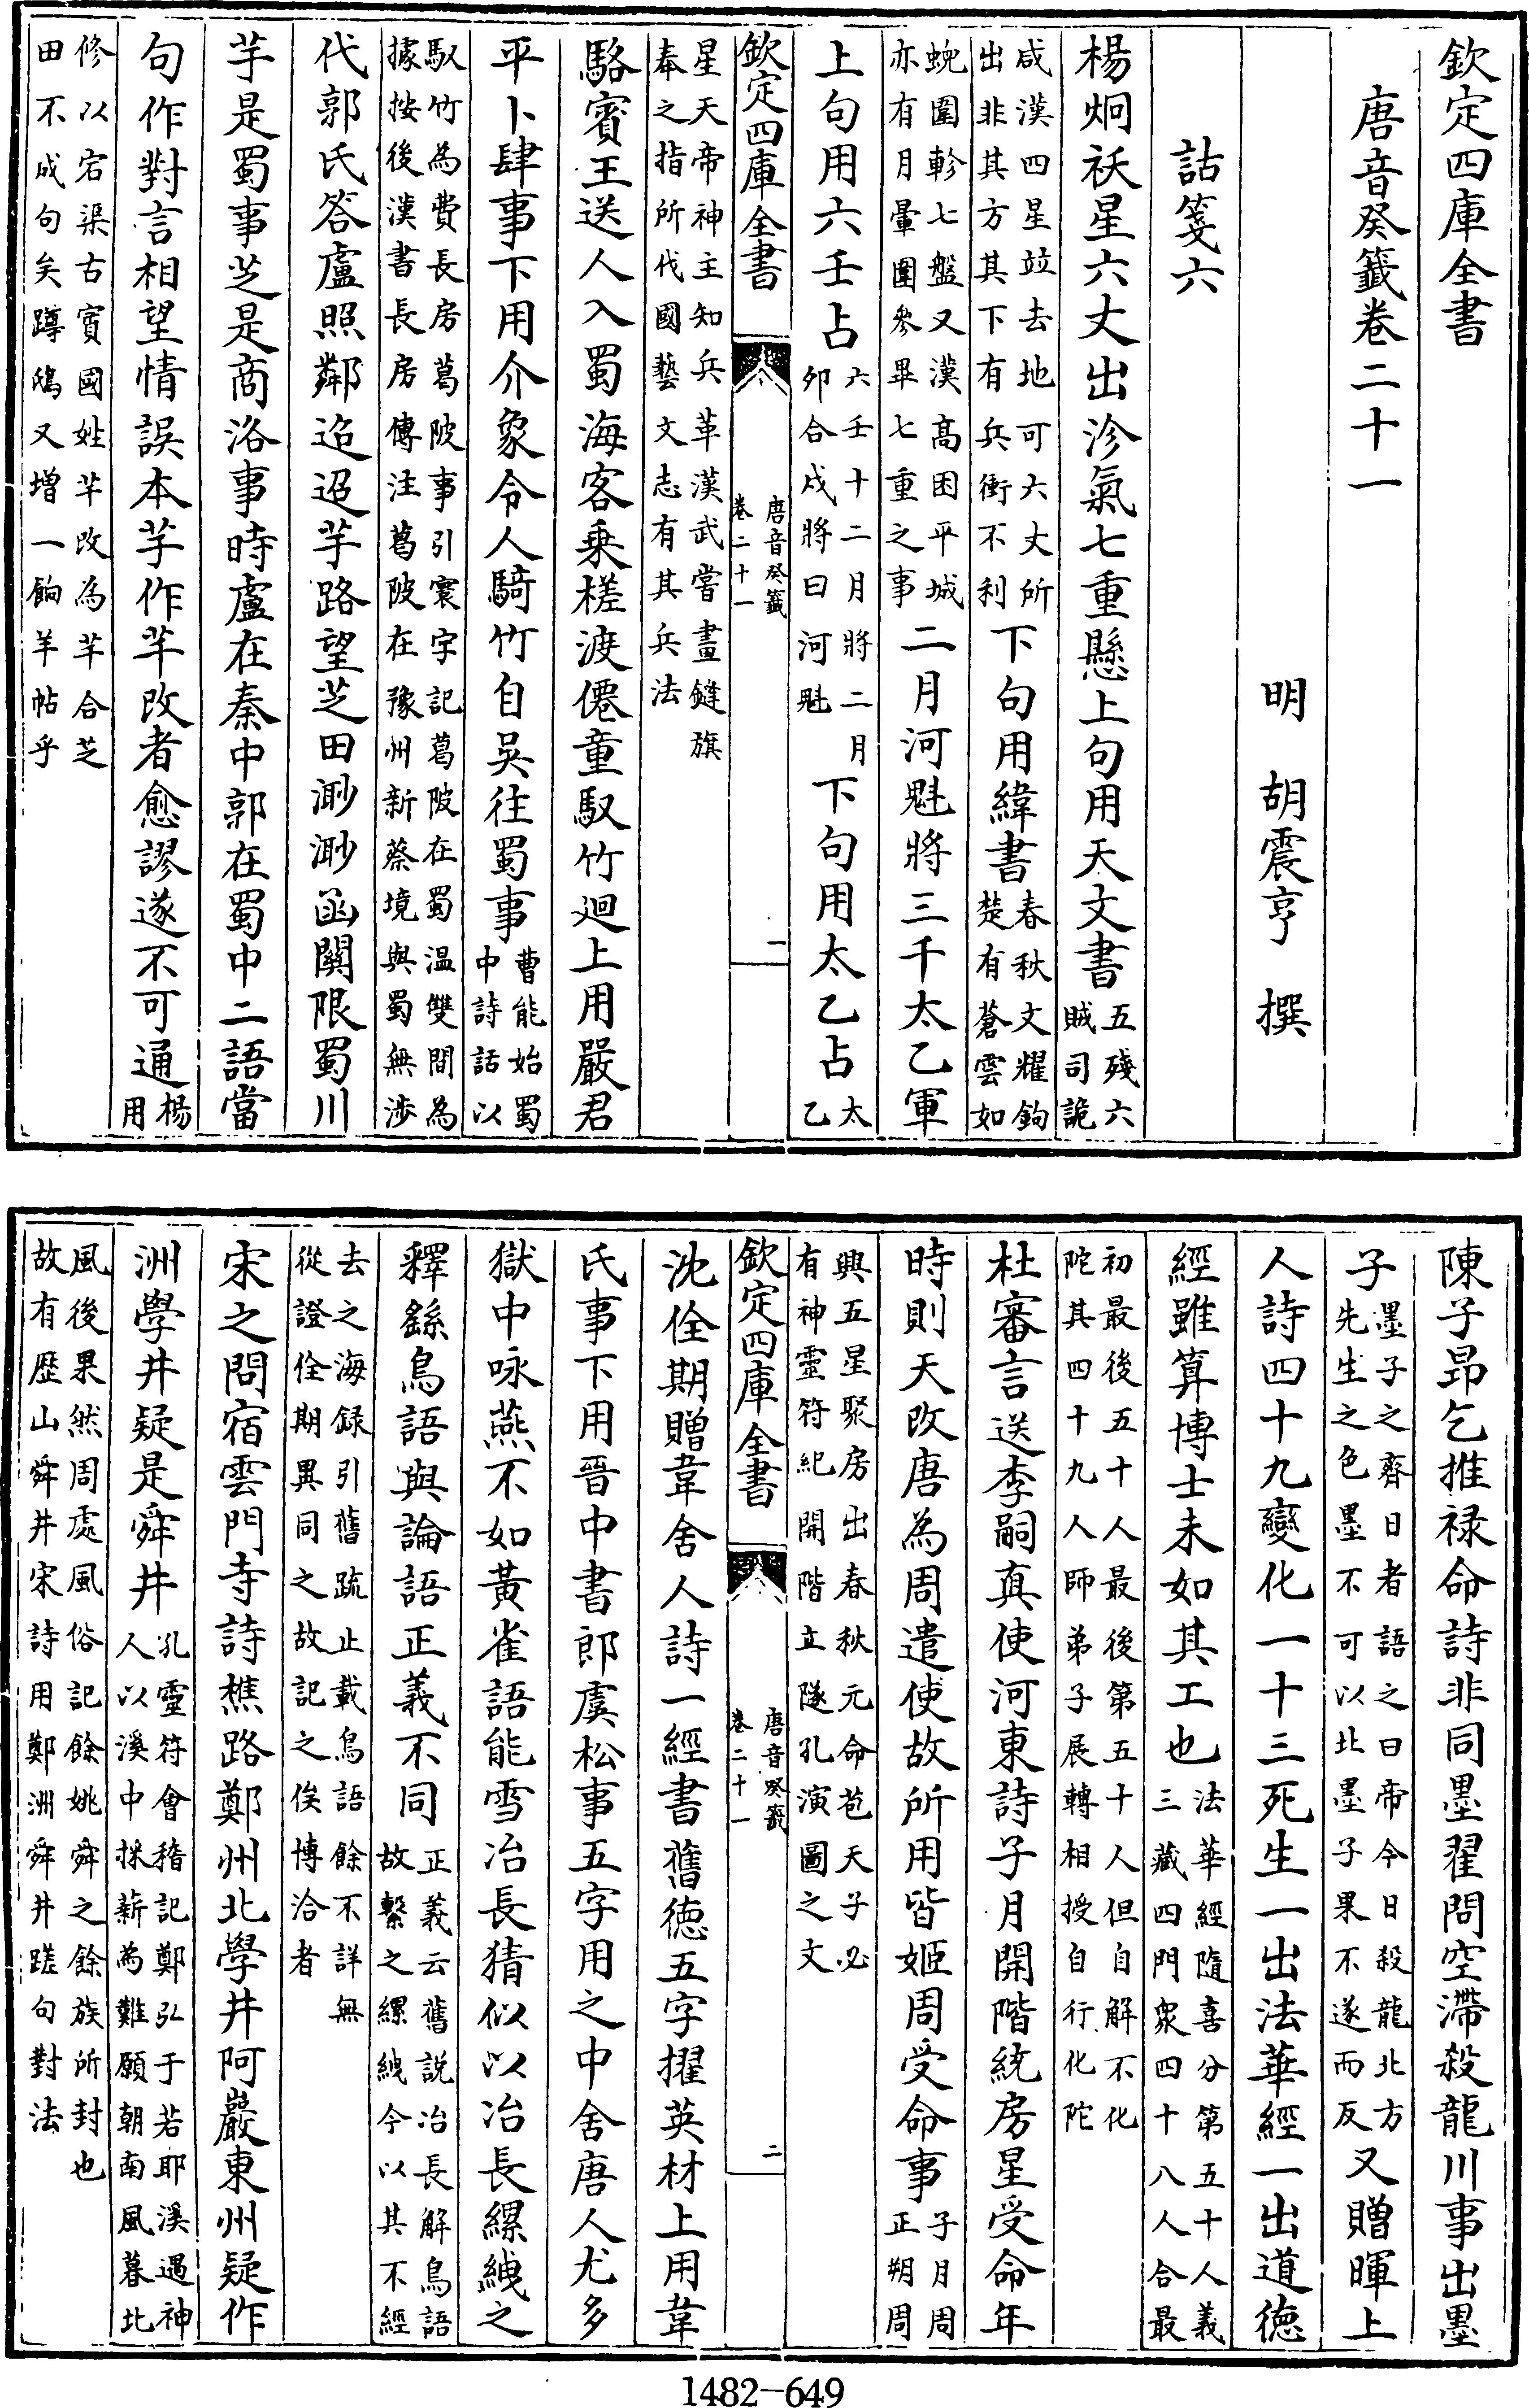 欽定四庫全書
唐音癸籤卷二十一
明　胡震亨　撰
詁箋六
楊炯祅星六丈出沴氣七重懸上句用天文書五殘六賊司詭
咸漢四星竝去地可六丈所出非其方其下有兵衝不利下句用緯書春秋文耀鉤楚有蒼雲如
蜺圍軫七盤又漢高困平城亦有月暈圍參畢七重之事二月河魁將三千太乙軍
上句用六壬占六壬十二月將二月卯合戌將曰河魁下句用太乙占太乙
星天帝神主知兵革漢武嘗畫鏠旗奉之指所代國藝文志有其兵法
欽定四庫全書
唐音癸籤
卷二十一
一
駱賓王送人入蜀海客乘槎渡僊童馭竹廻上用嚴君
平卜肆事下用介象令人騎竹自吳往蜀事曹能始蜀中詩話以
馭竹為費長房葛陂事引寰宇記葛陂在蜀温雙間為據按後漢書長房傳注葛陂在豫州新蔡境與蜀無涉
代郭氏答盧照鄰迢迢芋路望芝田渺渺函關限蜀川
芋是蜀事芝是商洛事時盧在秦中郭在蜀中二語當
句作對言相望情誤本芋作芊改者愈謬遂不可通楊用
修以宕渠古賓國姓芊改為芊合芝田不成句矣蹲鴟又增一餉羊帖乎
陳子昂乞推禄命詩非同墨翟問空滯殺龍川事出墨
子墨子之齊日者語之曰帝今日殺龍北方先生之色墨不可以北墨子果不遂而反又贈暉上
人詩四十九變化一十三死生一出法華經一出道徳
經雖算博士未如其工也法華經隨喜分第五十人義三藏四門衆四十八人合最
初最後五十人最後第五十人但自解不化陀其四十九人師弟子展轉相授自行化陀
杜審言送李嗣真使河東詩子月開階統房星受命年
時則天改唐為周遣使故所用皆姬周受命事子月周正朔周
興五星聚房出春秋元命苞天子必有神靈符紀開階立隧孔演圖之文
欽定四庫全書
唐音癸籤
卷二十一
二
沈佺期贈韋舍人詩一經書舊徳五字擢英材上用韋
氏事下用晉中書郎虞松事五字用之中舍唐人尤多
獄中咏燕不如黃雀語能雪冶長猜似以冶長縲絏之
釋繇鳥語與論語正義不同正義云舊説冶長解鳥語故繫之縲絏今以其不經
去之海録引舊疏止載鳥語餘不詳無從證佺期異同之故記之俟博洽者
宋之問宿雲門寺詩樵路鄭州北學井阿巖東州疑作
洲學井疑是舜井孔靈符會稽記鄭弘于若耶溪遇神人以溪中採薪為難願朝南風暮北
風後果然周處風俗記餘姚舜之餘族所封也故有歴山舜井宋詩用鄭洲舜井蹉句對法
1482-649